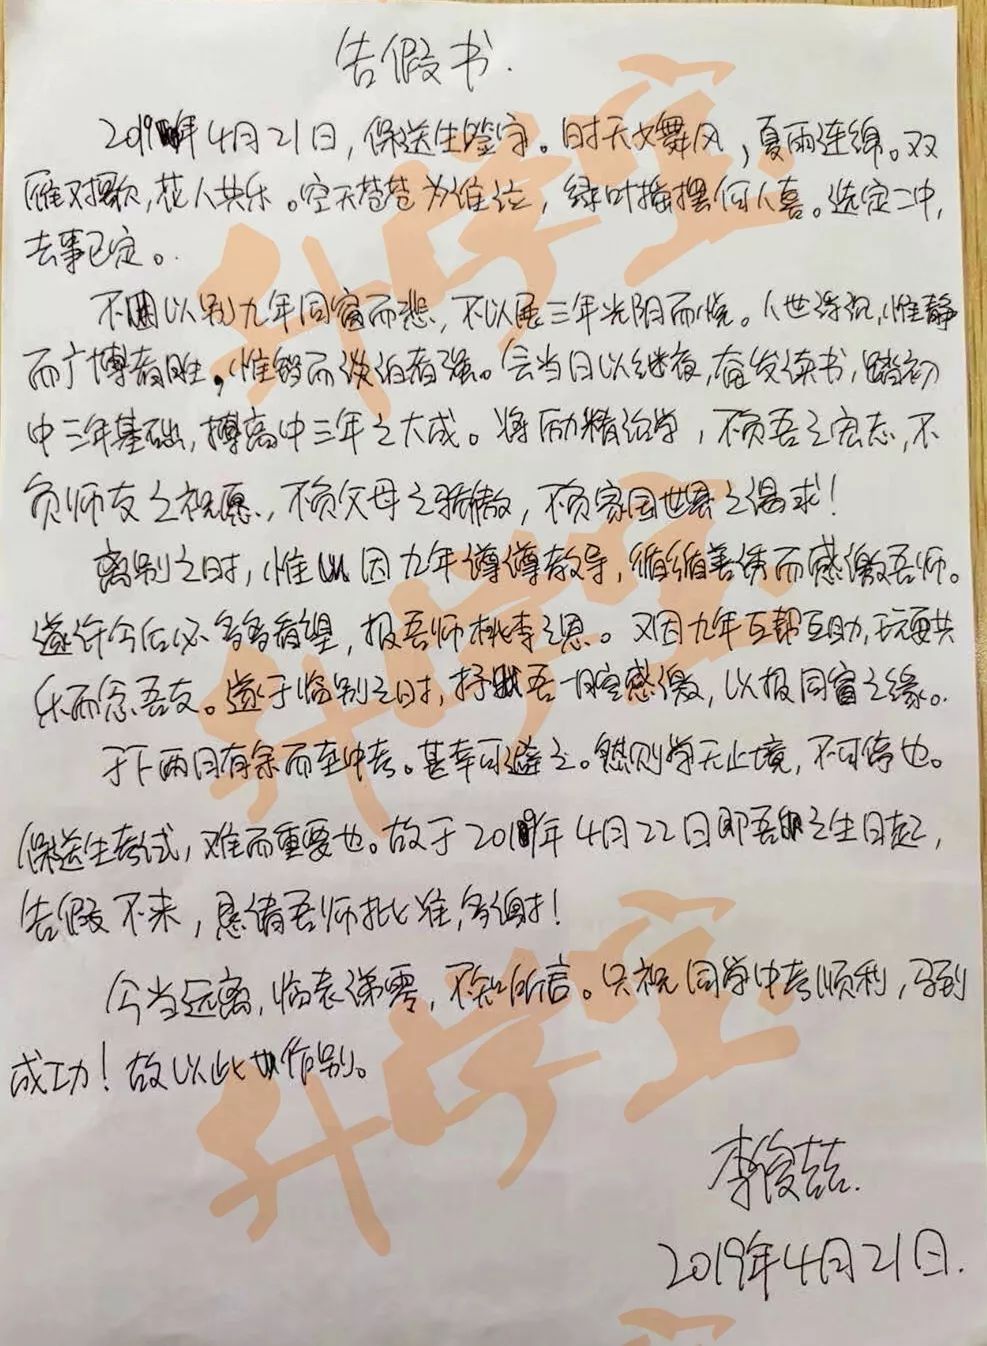 告假书.
2019年4月21日,保送生签字。时天火舞风,夏雨连绵。双
雁对歌,花人共乐。空天苍苍为谁泣,绿叶摇摆何人喜。选定二中,
去事已定。
不因以别九年同窗而悲,不以展三年光阴而悦。人世浮沉,惟静
而广博者胜,惟智而淡泊者强。会当日以继夜,奋发读书,踏初
中三年基础,搏高中三年之大成。将励精治学,不负吾之宏志,不
负师友之祝愿,不负父母之骄傲,不负家国世界之渴求!
离别之时,惟因九年谆谆教导,循循善诱而感激吾师。
遂许今后必多多看望,报吾师桃李之恩。又因九年互帮互助,玩耍共
乐而念吾友。遂于临别之时,抒吾一腔感激,以报同窗之缘。
于下两月有余而至中考。甚幸可避之。然则学无止境,不可停也。
保送生考试,难而重要也。故于2019年4月22日即吾之生日起,
告假不来,恳请吾师批准,多谢!
今当远离,临表涕零,不知所言。只祝同学中考顺利,马到
成功!故以此作别。
李俊喆.
2019年4月21日.
升学宝
升学宝
升学宝